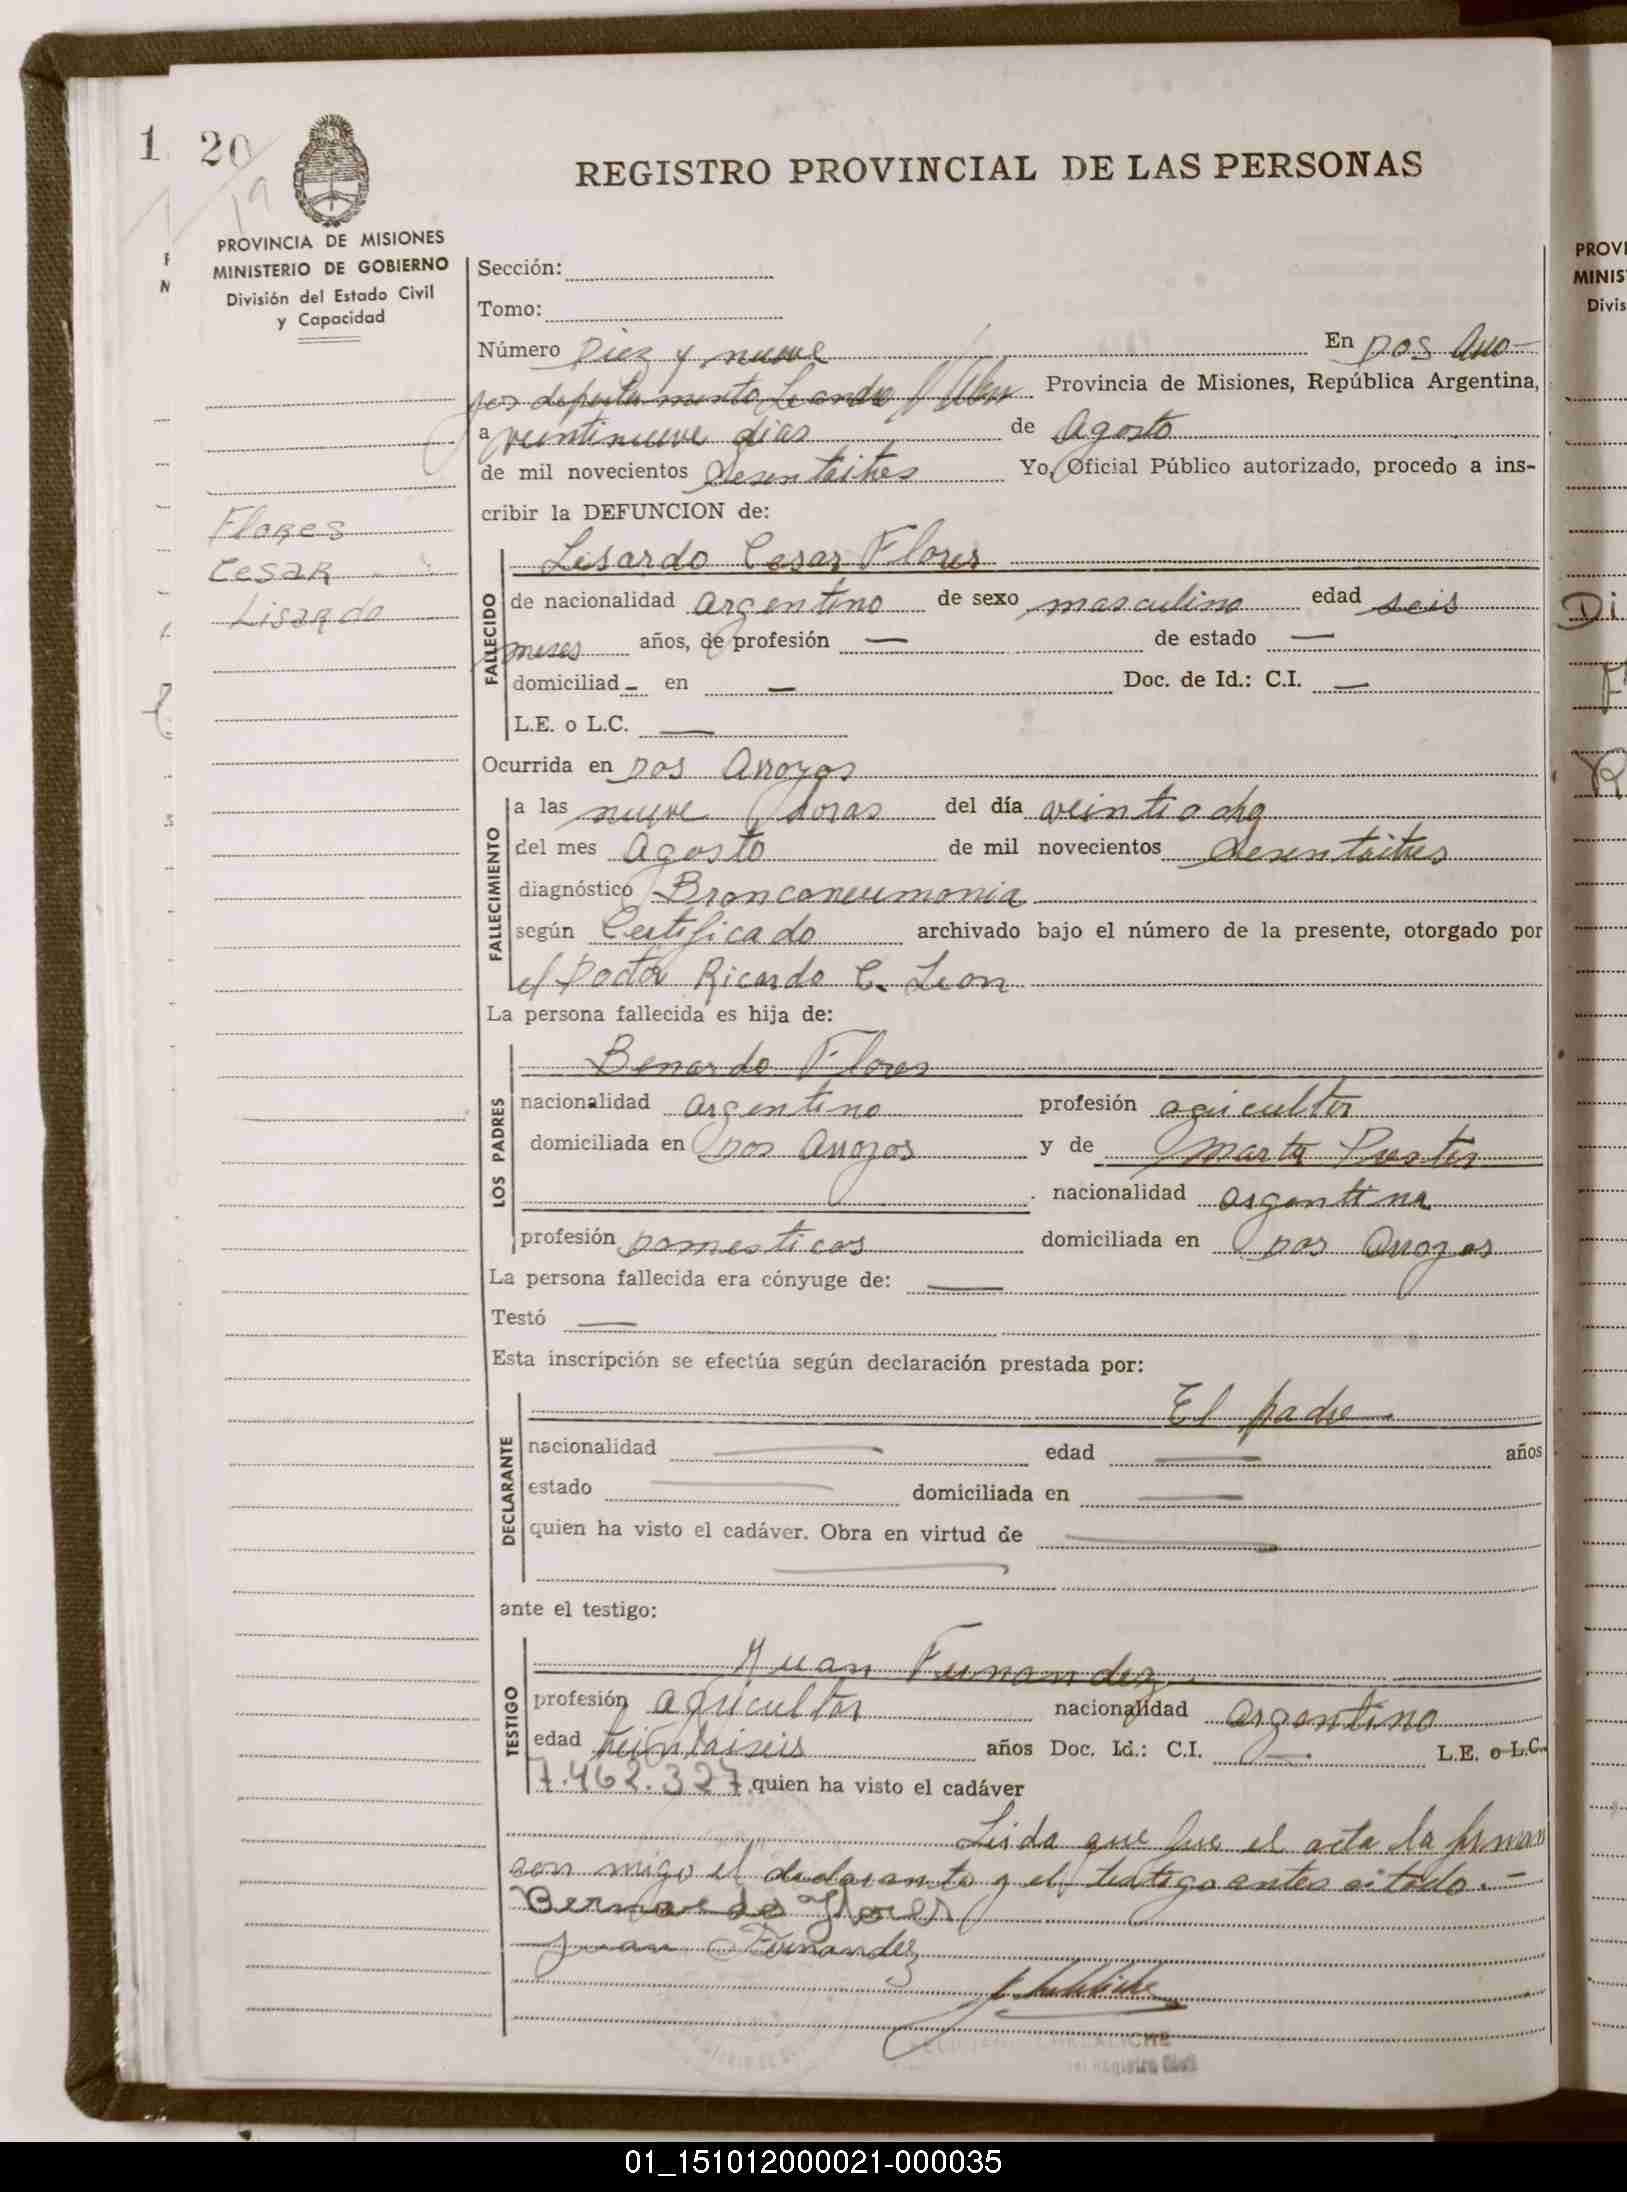 1 20
19
REGISTRO PROVINCIAL DE LAS PERSONAS
PROVINCIA DE MISIONES
MINISTERIO DE GOBIERNO
División del Estado Civil
y Capacidad
Flores
Cesar
Lisardo
Sección:
Tomo:
Número Diez y nueve En Dos Arro-
yos departamento Leandro Alem Provincia de Misiones, República Argentina,
a veintinueve dias de Agosto
de mil novecientos sesentaitres Yo, Oficial Público autorizado, procedo a ins-
cribir la DEFUNCION de:
Lisardo Cesar Flores
FALLECIDO
de nacionalidad argentino de sexo masculino edad seis
meses años, de profesión — de estado —
domiciliad - en — Doc. de Id.: C.I. —
L.E. o L.C. —
Ocurrida en Dos Arroyos
FALLECIMIENTO
a las nueve horas del día veintiocho
del mes Agosto de mil novecientos sesentaitres
diagnóstico Bronconeumonia
según Certificado archivado bajo el número de la presente, otorgado por
el Doctor Ricardo C. Leon
La persona fallecida es hija de:
LOS PADRES
Benardo Flores
nacionalidad argentino profesión agricultor
domiciliada en Dos Arroyos y de Marta
nacionalidad argentina
profesión Domesticos domiciliada en Dos Arroyos
La persona fallecida era cónyuge de: —
Testó —
Esta inscripción se efectúa según declaración prestada por:
DECLARANTE
El padre
nacionalidad — edad — años
estado — domiciliada en —
quien ha visto el cadáver. Obra en virtud de —
ante el testigo:
TESTIGO
Juan Fernandez
profesión agricultor nacionalidad argentino
edad treintaiseis años Doc. Id.: C.I. — L.E. o L.C.
7.462.327 quien ha visto el cadáver
Leida que fue el acta la firman
con migo el declarante y el testigo antes citado. -
Bernardo Flores
Juan Fernandez
PROVI
MINIS
Divis
Di
01_151012000021-000035